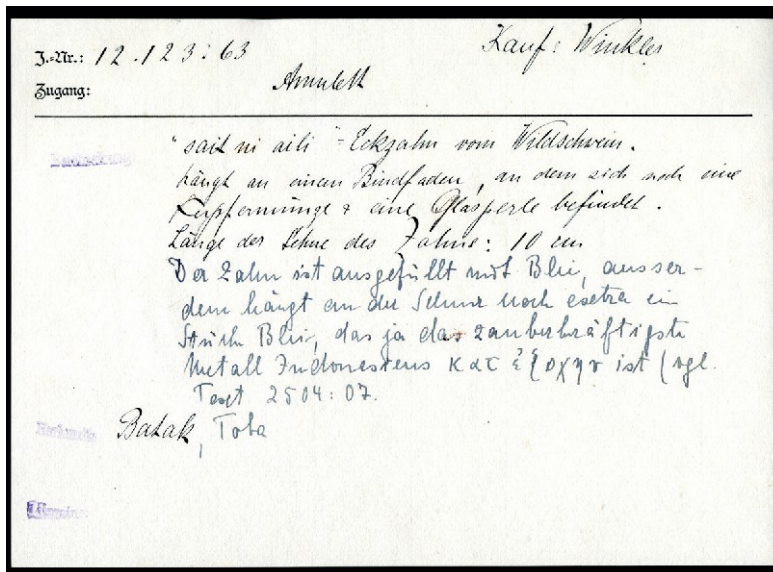 J.-Nr.: 12.123:63 Kauf: Winkler
Zugang: Amulett
"sait ni aili" = Eckzahn vom Wildschwein.
hängt an einem Bindfaden, an dem sich noch eine
Kupfermünze & eine Glasperle befindet.
Länge der Sehne des Zahns: 10 cm
Der Zahn ist ausgefüllt mit Blei, ausser-
dem hängt an der Schnur noch extra ein
Stück Blei, das ja das zauberkräftigste
Metall Indonesiens κατ ἐξοχην ist (vgl.
Text 2504:07.
Herkunft: Batak, Toba